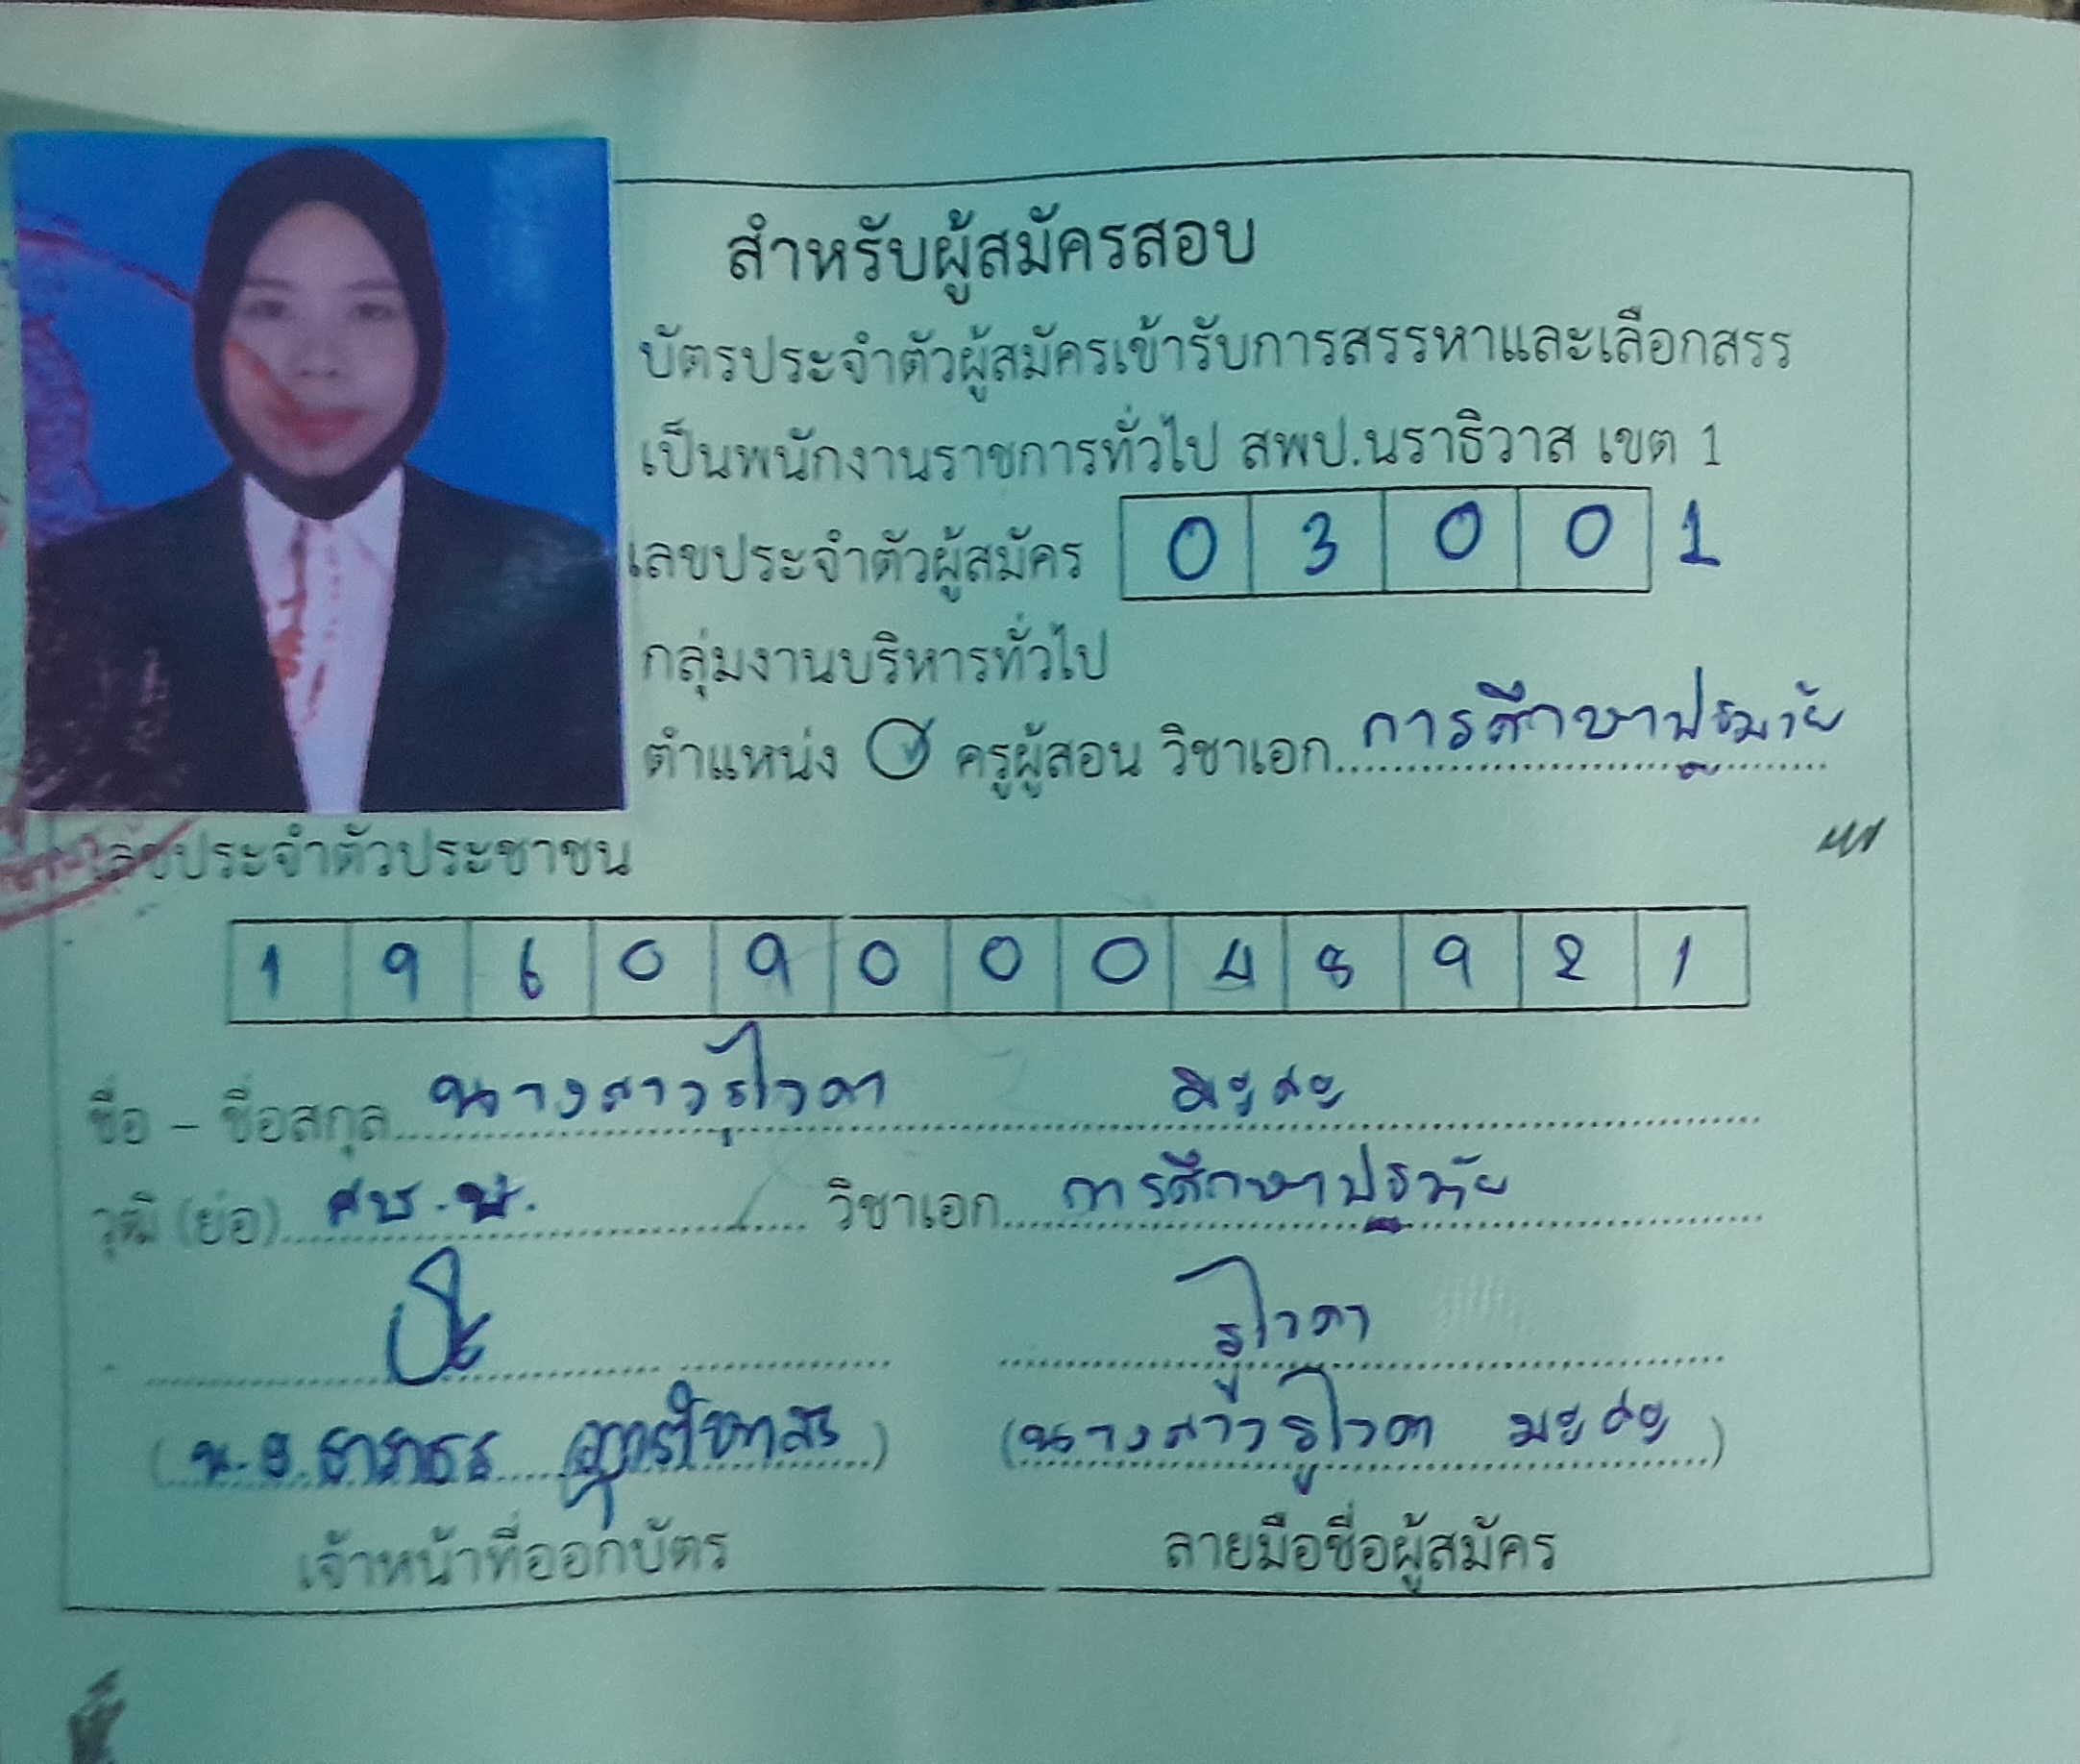 สำหรับผู้สมัครสอบ
บัตรประจำตัวผู้สมัครเข้ารับการสรรหาและเลือกสรร
เป็นพนักงานราชการทั่วไป สพป.นราธิวาส เขต 1
เลขประจำตัวผู้สมัคร 0 3 0 0 1
กลุ่มงานบริหารทั่วไป
ตำแหน่ง ครูผู้สอน วิชาเอก การศึกษาปฐมวัย
เลขประจำตัวประชาชน
1 9 6 0 9 0 0 0 4 8 9 2 1
ชื่อ - ชื่อสกุล นางสาวรูไวดา มะดะ
วุฒิ (ย่อ) ศษ.บ. วิชาเอก การศึกษาปฐมวัย
รูไวดา
(นางสาวรูไวดา มะดะ)
เจ้าหน้าที่ออกบัตร ลายมือชื่อผู้สมัคร